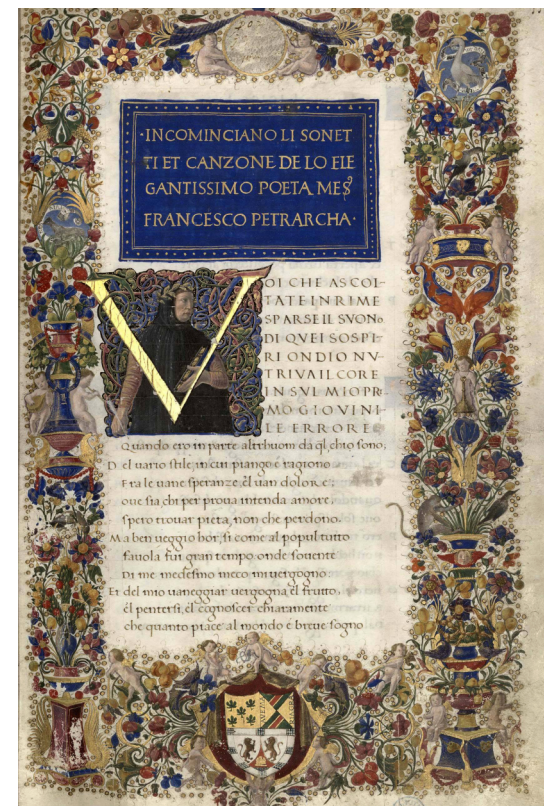 ·INCOMINCIANO LI SONET
TI ET CANZONE DE LO ELE
GANTISSIMO POETA MES
FRANCESCO PETRARCHA·
VOI CHE ASCOL-
TATE IN RIME
SPARSE IL SVONo
DI QVEI SOSPI-
RI ONDIO NV-
TRIVA IL CORE
IN SVL MIO PR-
MO GIOVINI-
LE ERRORE
Quando ero in parte altrhuom da ql chio sono.
Del uario stile, in cui piango e ragiono
Fra le uane speranze, el uan dolore:
oue sia chi per proua intenda amore,
spero trouar pieta, non che perdono.
Ma ben ueggio hor, si come al popul tutto
fauola fui gran tempo, onde souente
Di me medesmo meco mi uergogno
Et del mio uaneggiar uergogna el frutto,
el pentersi, el cognoscer chiaramente
che quanto piace al mondo e breue sogno